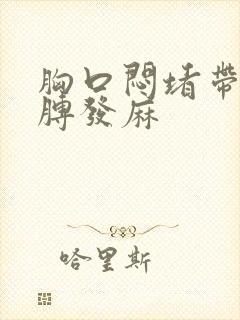 胸口悶堵帶
膊發麻
哈里斯